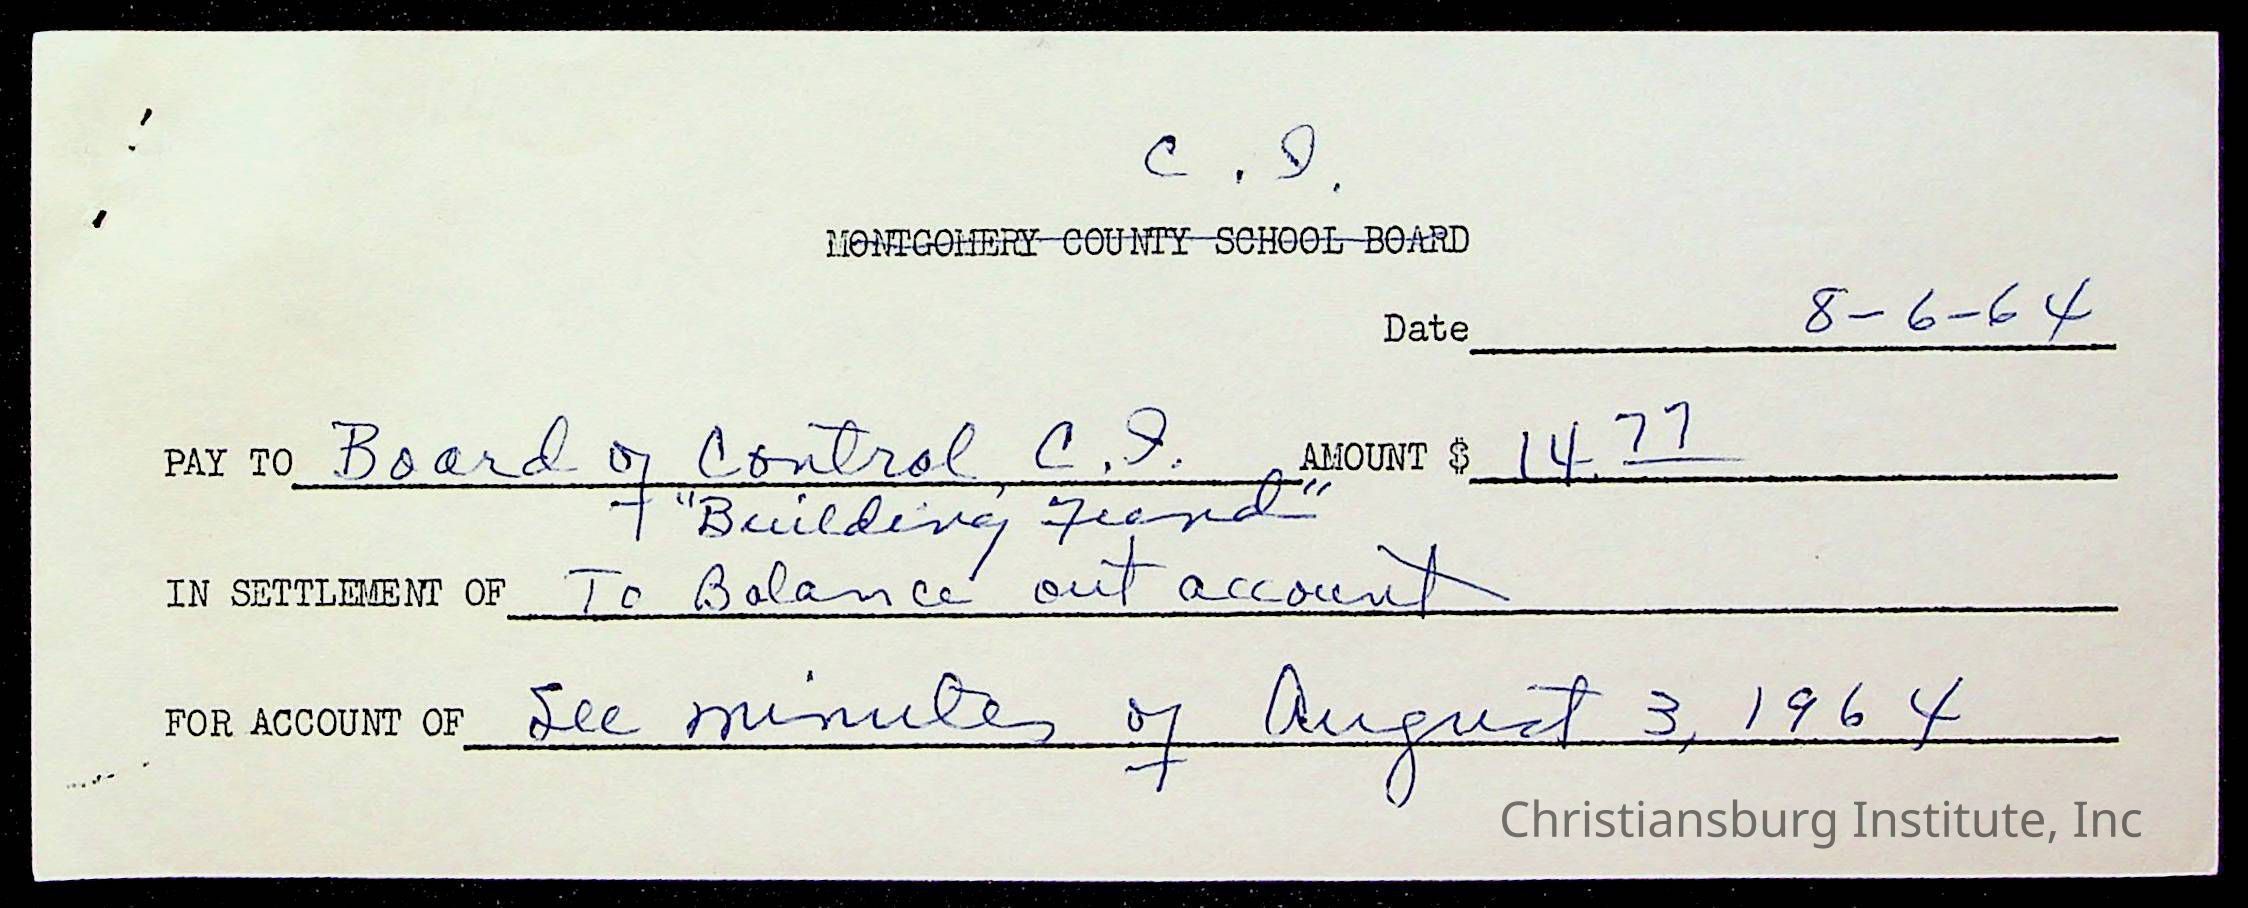 C. I.
MONTGOMERY COUNTY SCHOOL BOARD
Date 8-6-64
PAY TO Board of Control, C.I. AMOUNT $ 14.77
"Building Fund"
IN SETTLEMENT OF To Balance out account
FOR ACCOUNT OF See minutes of August 3, 1964
Christiansburg Institute, Inc